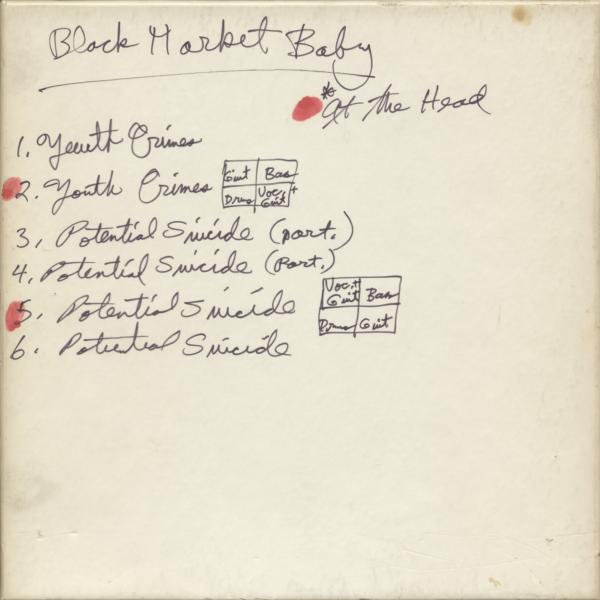 Black Market Baby
* At the Head
1. Youth Crimes
2. Youth Crimes
Guit Bas
Drms Voc. + Guit
3. Potential Suicide (part.)
4. Potential Suicide (Part.)
5. Potential Suicide
Voc. + Guit Bas
Drms Guit
6. Potential Suicide